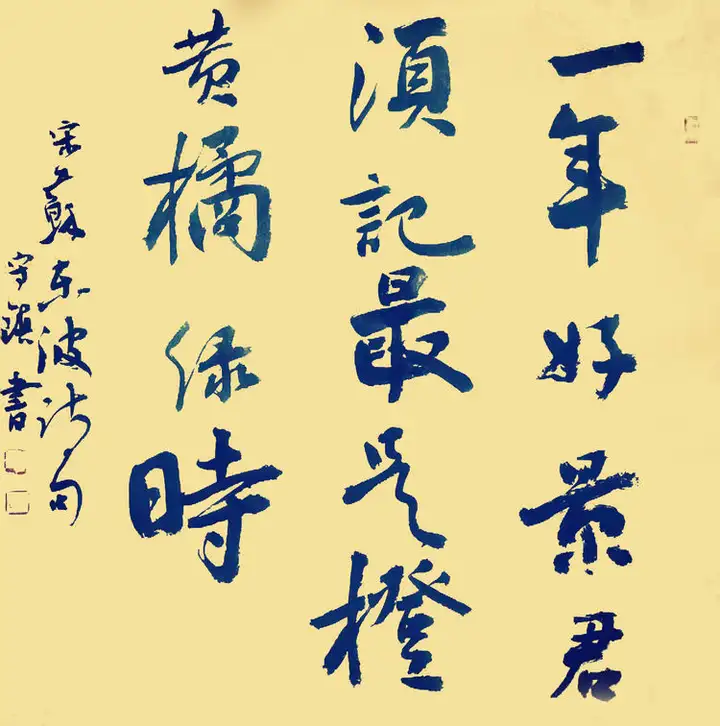 一年好景君
須記最是橙
黄橘绿時
宋蘇東坡詩句
守鎮書